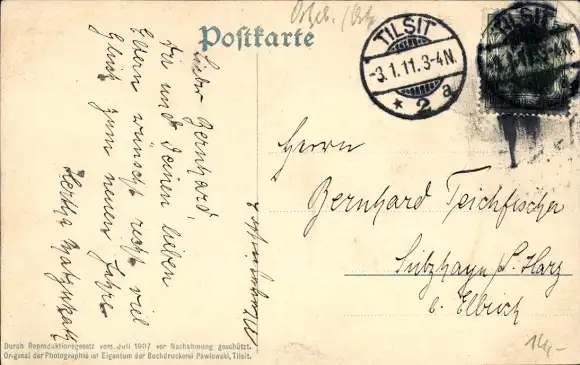 Ostpr. /
Postkarte
TILSIT
-3.1.11.3-4N.
* 2 a
TILSIT
.1.11.3-4N.
Lieber Bernhard,
Dir und Deinen lieben
Eltern wünscht recht viel
Glück zum neuen Jahre
Hertha
Herrn
Bernhard Teichfischer
Sülzhayn s. Harz
b. Ellrich
14,-
Durch Reproduktionsgesetz vom Juli 1907 vor Nachahmung geschützt.
Original der Photographie ist Eigentum der Buchdruckerei Pawlowski, Tilsit.